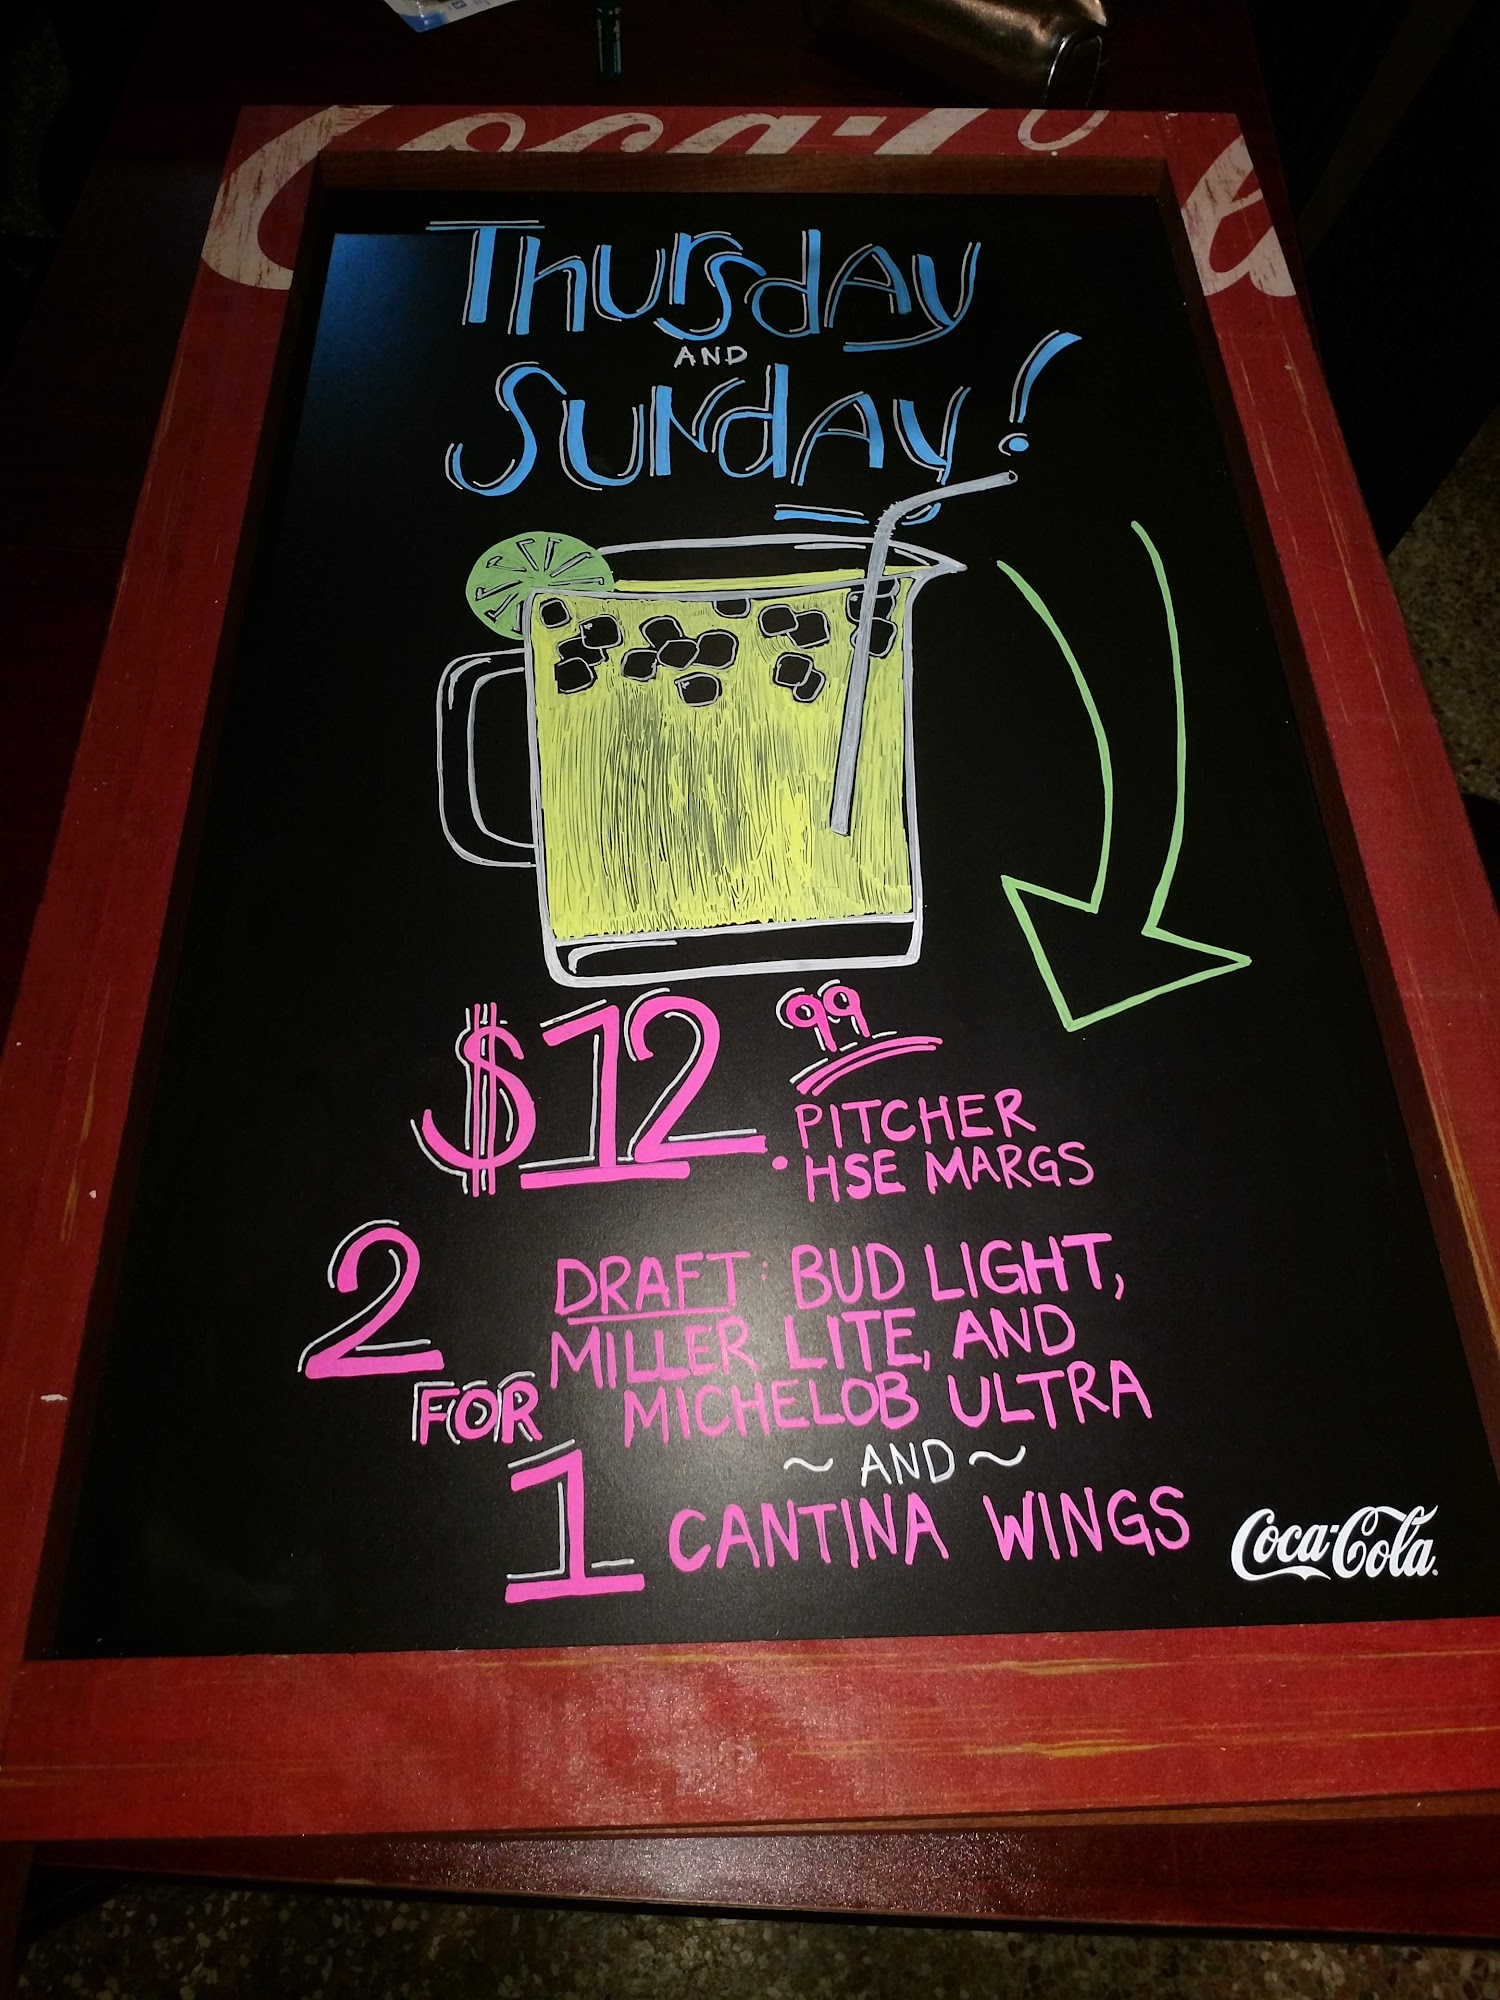 Coca-Co
Thursday
AND
Sunday!
$12.99
PITCHER
HSE MARGS
2 FOR 1
DRAFT: BUD LIGHT,
MILLER LITE, AND
MICHELOB ULTRA
~ AND ~
CANTINA WINGS
Coca-Cola